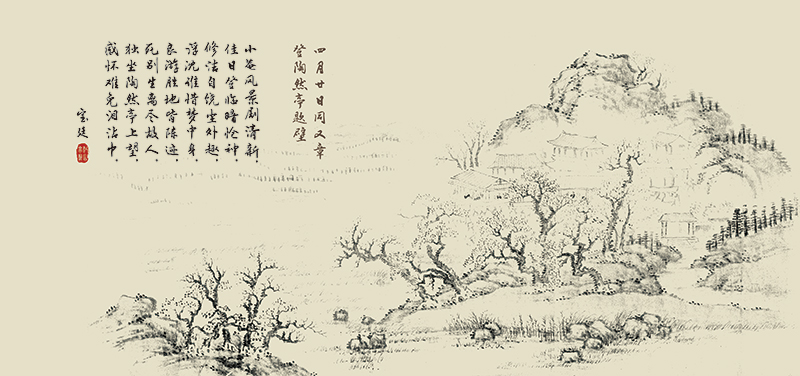 四月廿日同又章
登陶然亭题壁
小 风景剧清新，
佳日登临暗怆神。
修洁自饶尘外趣，
浮沉谁惜梦中身。
良游胜地皆陈迹，
死别生离尽故人。
独坐陶然亭上望，
感怀难免泪沾巾。